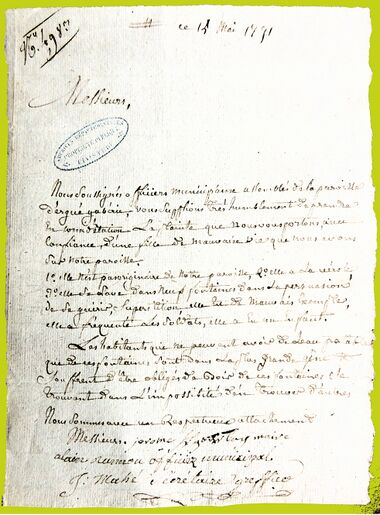 ce 15 Mai 1791
Messieurs,
Nous soussignés officiers municipaux assemblés de la paroisse
d'ergué gaberic, vous supplions très humblement de prendre
en considération La plainte que Nous vous portons avec
Confiance, d'une fille de mauvaise vie que nous avons
sur notre paroisse.
1° elle n'est pas originaire de notre paroisse, 2° elle a La vérole
3° elle se Lave dans Neuf fontaines dans la persuasion
de se guérir, superstition, elle est de Mauvais exemple,
elle a frequenté Les soldats, elle a eu un enfant.
Les habitants que ne peuvent avoir de Leau
que de ces fontaines, sont dans La plus grande
Souffrent d'être obligés de boire de ces fontaines et se
trouvent dans L'impossibilité d'en trouver d'autres
Nous sommes avec un Respectueux attachement
Messieurs maire
alain officier municipal
J: Mahé secretaire greffier